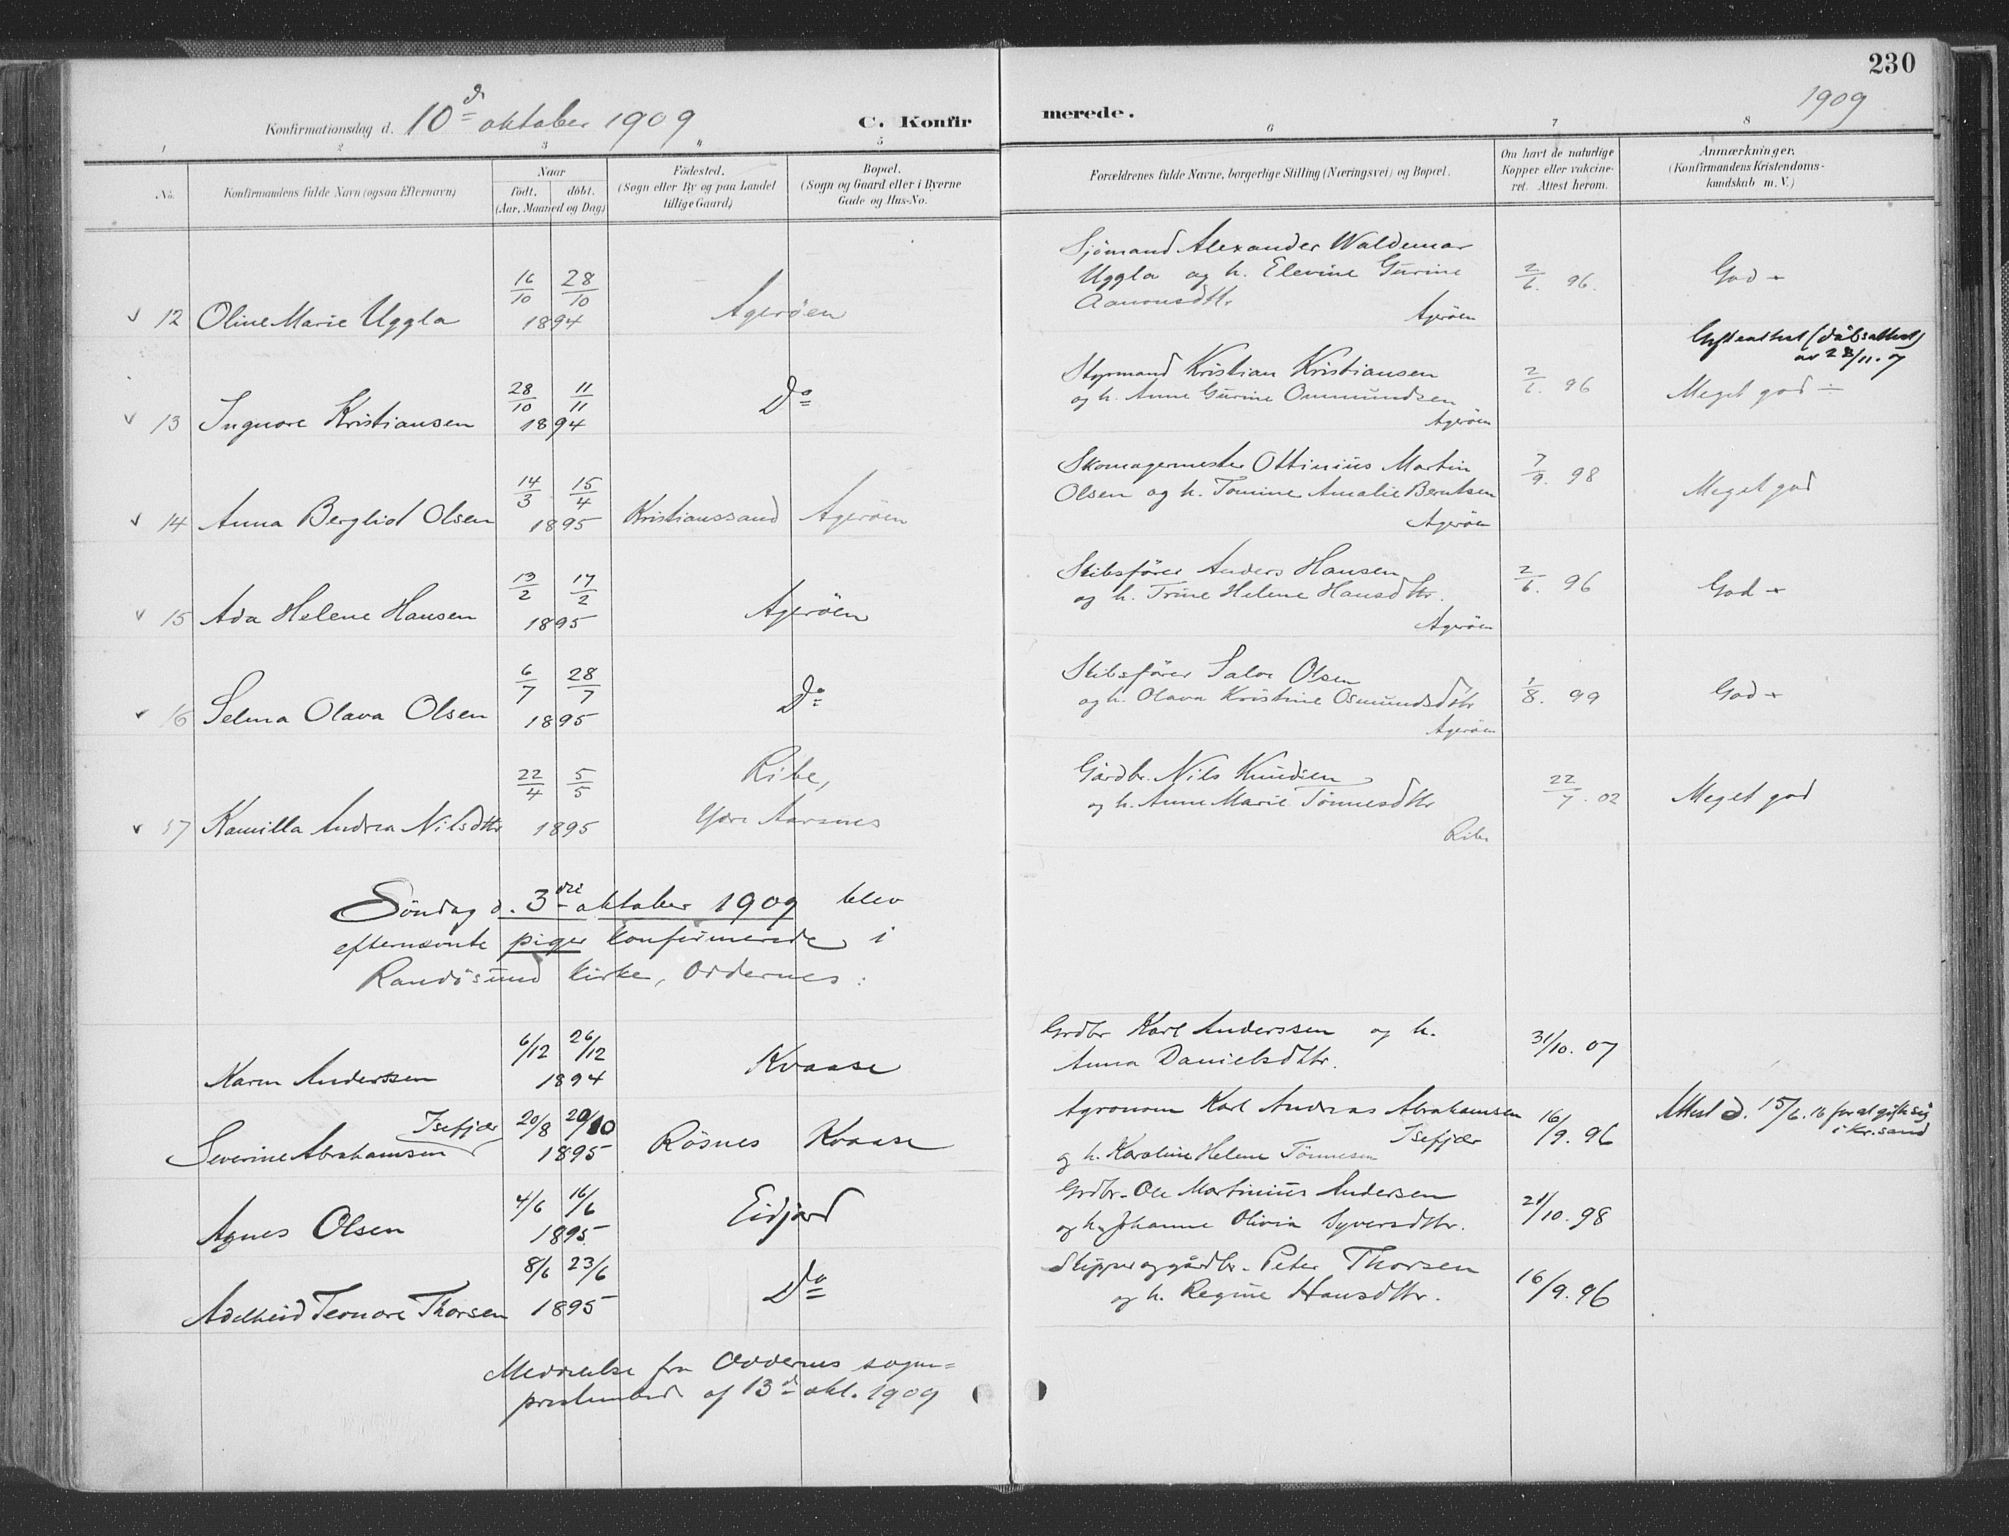 230
1909
Konfirmationsdag d. 10d oktober 1909 C. Konfirmerede.
1 2 3 4 5 6 7 8
No.
Konfirmandens fulde Navn (ogsaa Efternavn)
Naar
födt. döbt.
(Aar, Maaned og Dag)
Födested.
(Sogn eller By og paa Landet
tillige Gaard)
Bopæl.
(Sogn og Gaard eller i Byerne
Gade og Hus-No.
Forældrenes fulde Navne, borgerlige Stilling (Næringsvei) og Bopæl.
Om havt de naturlige
Kopper eller vakcine-
ret. Attest herom.
Anmærkninger.
(Konfirmandens Kristendoms-
kundskab m. V.)
12 Oline Marie Uggla 16/10 28/10 1894 Agerøen
Sjömand Alexander Waldemar
Uggla og h. Elevine Gurine
Aanonsdttr Agerøen
2/6. 96. God
13 Ingvare Kristiansen 28/10 11/11 1894 Do
Styrmand Kristian Kristiansen
og h. Anne Gurine Ommundsen
Agerøen
2/6. 96 Meget god
(dåbsattest)
av 28/11. 07
14 Anna Bergliot Olsen 14/3 15/4 1895 Kristianssand Agerøen
Skomagermester Ottinius Martin
Olsen og h. Tomine Amalie Berntsen
Agerøen
7/9. 98 Meget god
15 Ada Helene Hansen 13/2 17/2 1895 Agerøen
Skibsfører Anders Hansen
og h. Trine Helene Hansdttr.
Agerøen
2/6. 96 God
16 Selma Olava Olsen 6/7 28/7 1895 Do
Skibsfører Salve Olsen
og h. Olava Kristine Osmundsdttr
Agerøen
1/8. 99 God
17 Kamilla Andrea Nilsdttr 22/4 5/5 1895 Ribe,
Ydre Aarsnes
Gårdbr. Nils Knudsen
og h. Anne Marie Tønnesdttr
Ribe
22/7. 02 Meget god
Søndag d. 3die oktober 1909 blev
efternævnte piger konfirmerede i
Randøsund kirke, Oddernes:
Karen Anderssen 6/12 26/12 1894 Kvaase
Grdbr Karl Anderssen og h.
Anna Danielsdttr.
31/10. 07
Isefjær
Severine Abrahamsen 20/8 20/10 1895 Røsnes Kvaase
Agronom Karl Andreas Abrahamsen
Isefjær
og h. Karoline Helene Tønnesen
16/9. 96
Attest d. 15/6. 16 for at gifte sig
i Kr.sand
Agnes Olsen 4/6 16/6 1895 Eidjord
Grdbr. Ole Martinius Andersen
og h. Johanne Olivia Syversdttr.
21/10. 98
Adelheid Teonore Thorsen 8/6 23/6 1895 Do
Skipper og gårdbr. Peter Thorsen
og h. Regine Hansdttr.
16/9. 96
Meddelelse fra Oddernes sogne=
prestembede af 13d okt. 1909